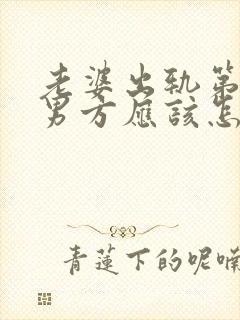 老婆出轨第
男方應該怎
青蓮下的呢喃